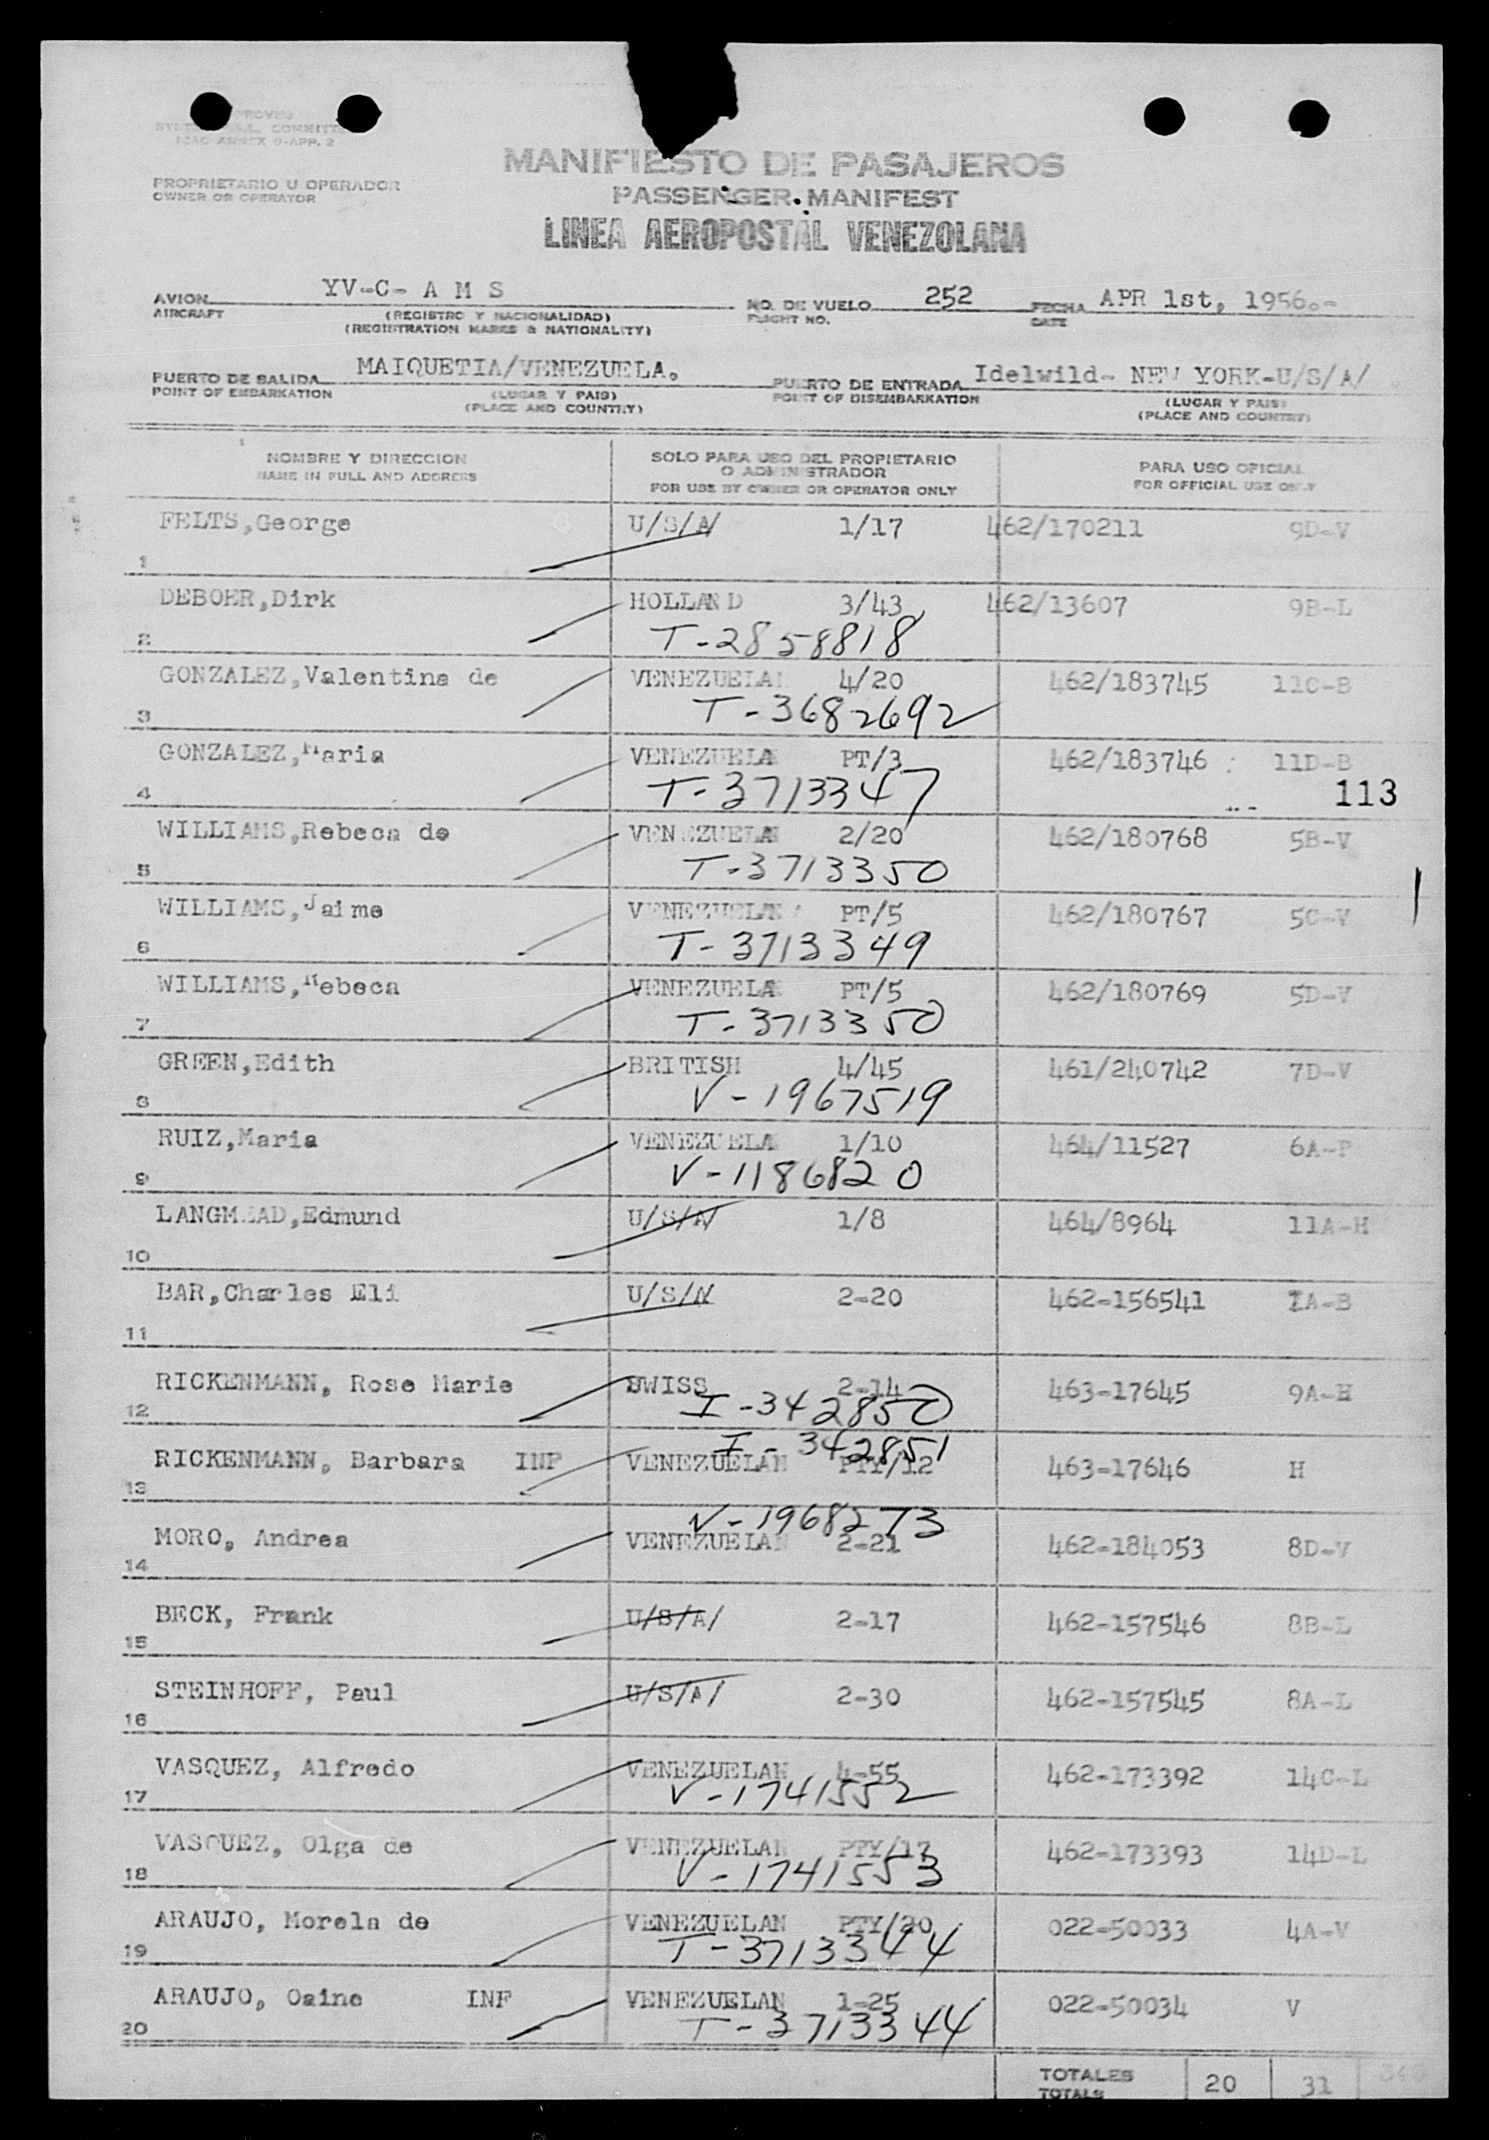 MANIFIESTO DE PASAJEROS
PASSENGER MANIFEST
LINEA AEROPOSTAL VENEZOLANA
ICAO ANNEX 9-APP. 2
PROPRIETARIO U OPERADOR
OWNER OR OPERATOR
AVION YV-C- A M S NO. DE VUELO 252 FECHA APR 1st, 1956.-
AIRCRAFT (REGISTRO Y NACIONALIDAD) FLIGHT NO. DATE
(REGISTRATION MARKS & NATIONALITY)
PUERTO DE SALIDA MAIQUETIA/VENEZUELA. PUERTO DE ENTRADA Idelwild- NEW YORK-U/S/A/
POINT OF EMBARKATION (LUGAR Y PAIS) POINT OF DISEMBARKATION (LUGAR Y PAIS)
(PLACE AND COUNTRY) (PLACE AND COUNTRY)
NOMBRE Y DIRECCION SOLO PARA USO DEL PROPIETARIO O ADMINISTRADOR PARA USO OFICIAL
NAME IN FULL AND ADDRESS FOR USE BY OWNER OR OPERATOR ONLY FOR OFFICIAL USE ONLY
FELTS,George U/S/A/ 1/17 462/170211 9D-V
1
DEBOER,Dirk HOLLAND 3/43 462/13607 9B-L
2 T-2858818
GONZALEZ,Valentina de VENEZUELAN 4/20 462/183745 11C-B
3 T-3682692
GONZALEZ,Maria VENEZUELA PT/3 462/183746 11D-B
4 T-3713347 113
WILLIAMS,Rebeca de VENEZUELA 2/20 462/180768 5B-V
5 T-3713350
WILLIAMS,Jaime VENEZUELA PT/5 462/180767 5C-V
6 T-3713349
WILLIAMS,Rebeca VENEZUELA PT/5 462/180769 5D-V
7 T-3713350
GREEN,Edith BRITISH 4/45 461/240742 7D-V
8 V-1967519
RUIZ,Maria VENEZUELA 1/10 464/11527 6A-P
9 V-1186820
LANGMEAD,Edmund U/S/A/ 1/8 464/8964 11A-H
10
BAR,Charles Eli U/S/A/ 2-20 462-156541 1A-B
11
RICKENMANN, Rose Marie SWISS 2-14 463-17645 9A-H
12 I-342850
I-342851
RICKENMANN, Barbara INF VENEZUELAN PTY/12 463-17646 H
13
V-1968273
MORO, Andrea VENEZUELAN 2-21 462-184053 8D-V
14
BECK, Frank U/S/A/ 2-17 462-157546 8B-L
15
STEINHOFF, Paul U/S/A/ 2-30 462-157545 8A-L
16
VASQUEZ, Alfredo VENEZUELAN 4-55 462-173392 14C-L
17 V-1741552
VASQUEZ, Olga de VENEZUELAN PTY/17 462-173393 14D-L
18 V-1741553
ARAUJO, Morela de VENEZUELAN PTY/20 022-50033 4A-V
19 T-3713344
ARAUJO, Oaine INF VENEZUELAN 1-25 022-50034 V
20 T-3713344
TOTALES 20 31
TOTALS